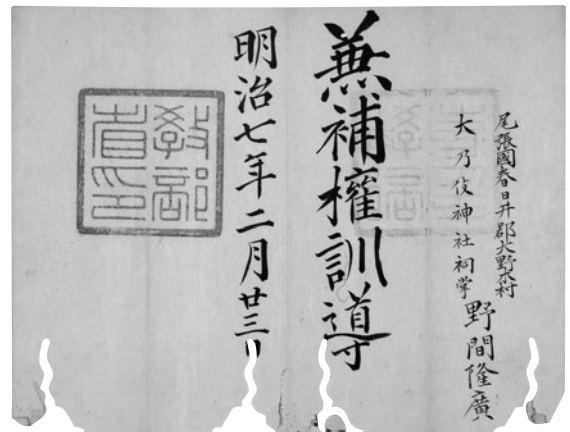 尾張國春日井郡大野木村
大乃伎神社祠掌 野間隆廣
兼補權訓導
明治七年二月廿三日
教部
省印